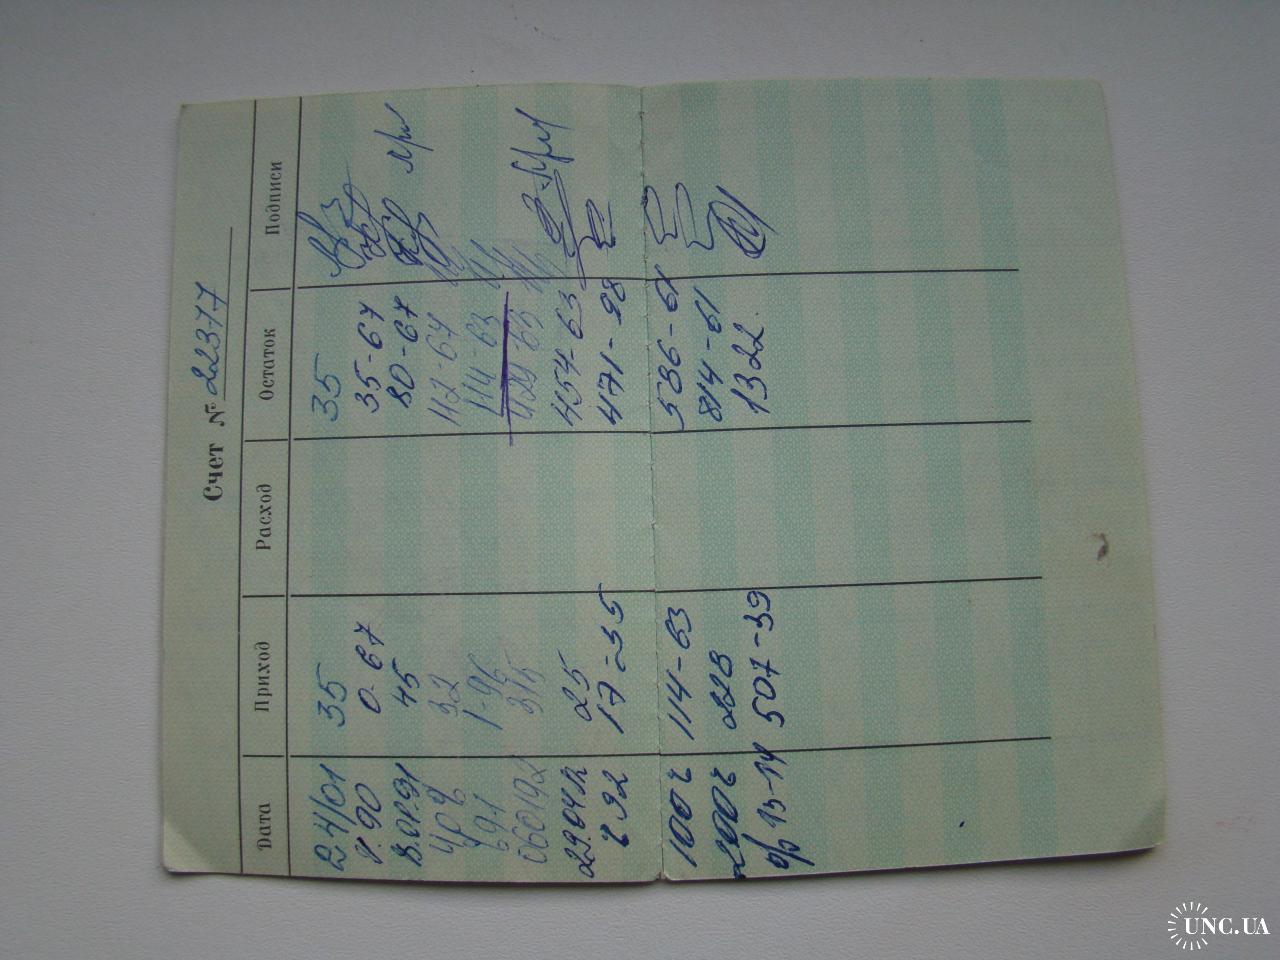 Счет № 22377
Дата Приход Расход Остаток Подписи
24/01 35 35
г.90 0.67 35-67
В.01.91 45 80-67
32 112-67
691 1-96 114-63
060192 315 429-63
29.04.92 25 454-63
г 92 17=35 471-98
100 г 114-63 586-61
2000 г 228 814-61
о/р 13-14 507-39 1322.
UNC.UA